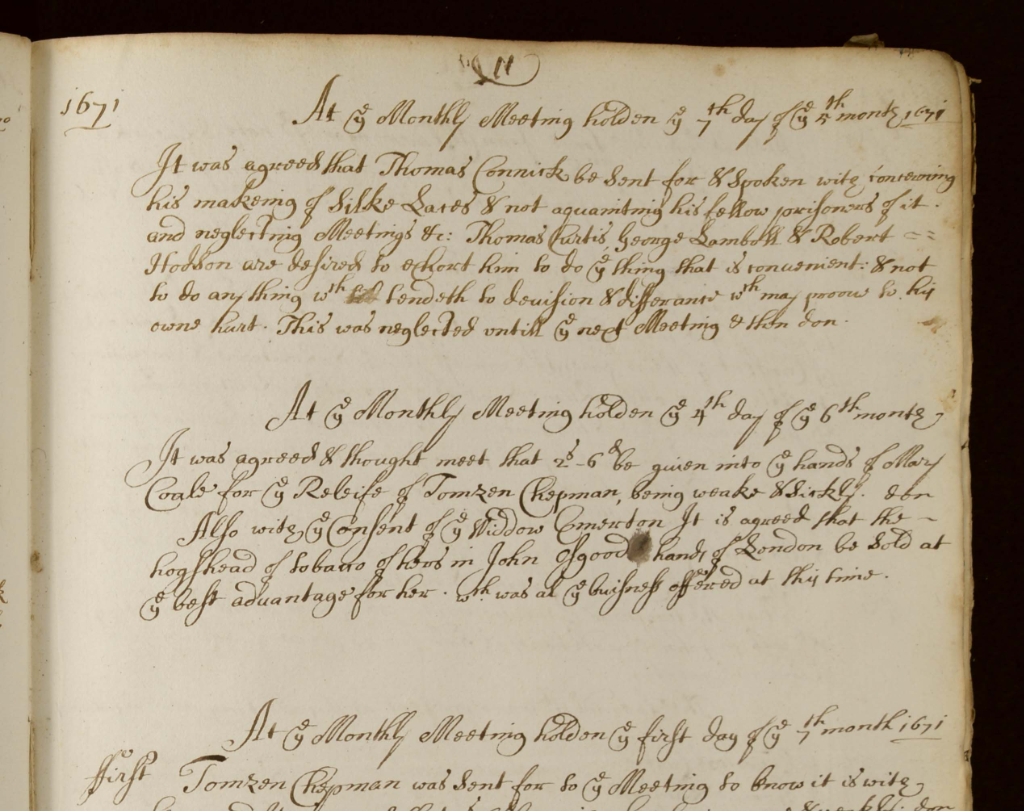 11
1671
At ye Monthly Meeting holden ye 7th day of ye 5th month 1671
It was agreed that Thomas Connick be sent for & spoken with concerning
his makeing of Silke Laces & not aquainting his fellow prisoners of it.
and neglecting Meetings &c: Thomas Curtis, George Lamboll & Robert ==
Hodson are desired to exhort him to do ye thing that is convenient: & not
to do any thing wch tendeth to devision & differance wch may proove to his
owne hurt. This was neglected untill ye next Meeting & then don.
At ye Monthly Meeting holden ye 4th day of ye 6th month
It was agreed & thought meet that 2s-6d be given into ye hands of Mary
Coale for ye Releife of Tomzen Chepman, being weake & Sickly. don
Also with ye Consent of ye Widdow Emerton It is agreed that the -
hogshead of tobacco of hers in John Osgood hands of London be Sold at
ye best advantage for her. wch was al ye buisness offered at this time.
At ye Monthly Meeting holden ye first day of ye 7th month 1671
ffirst Tomzen Chepman was sent for to ye Meeting to know it is with